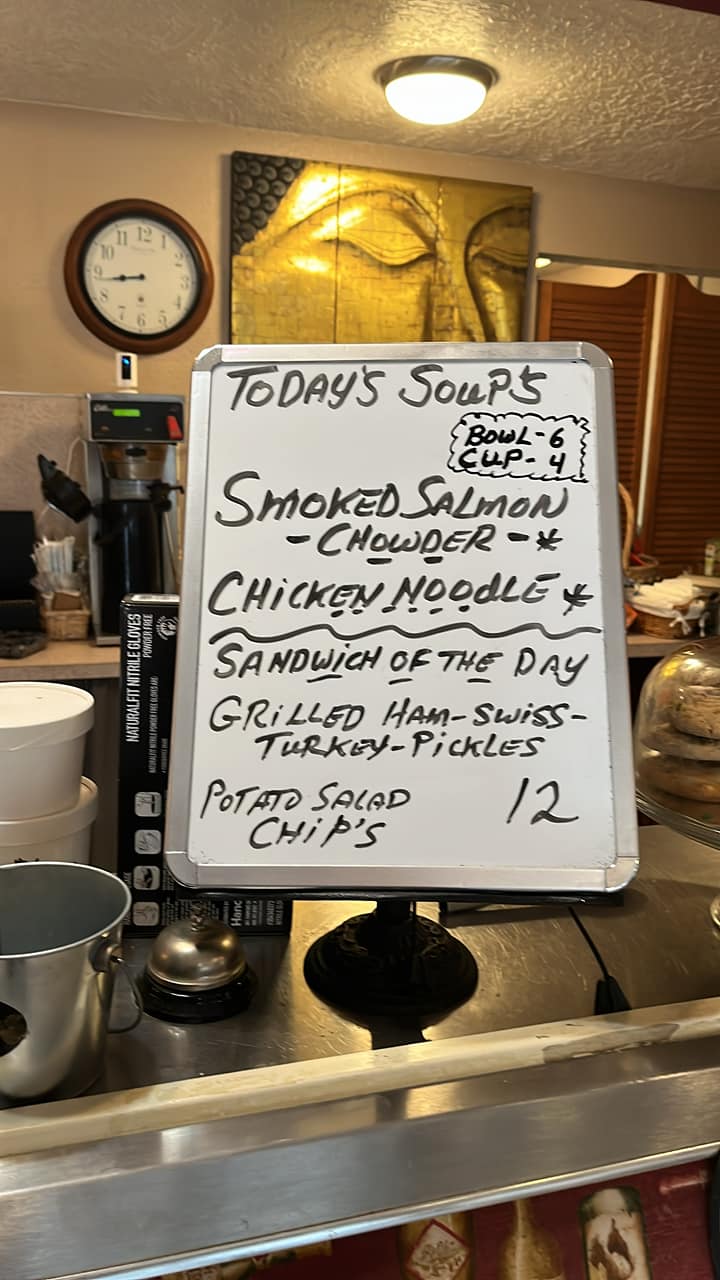 TODAY'S SOUP'S
BOWL-6
CUP-4
SMOKED SALMON
-CHOWDER-*
CHICKEN NOODLE *
SANDWICH OF THE DAY
GRILLED HAM-SWISS-
TURKEY-PICKLES
POTATO SALAD 12
CHIP'S
NATURALFIT NITRILE GLOVES
POWDER FREE
11 12 1
10 2
9 3
8 4
7 6 5